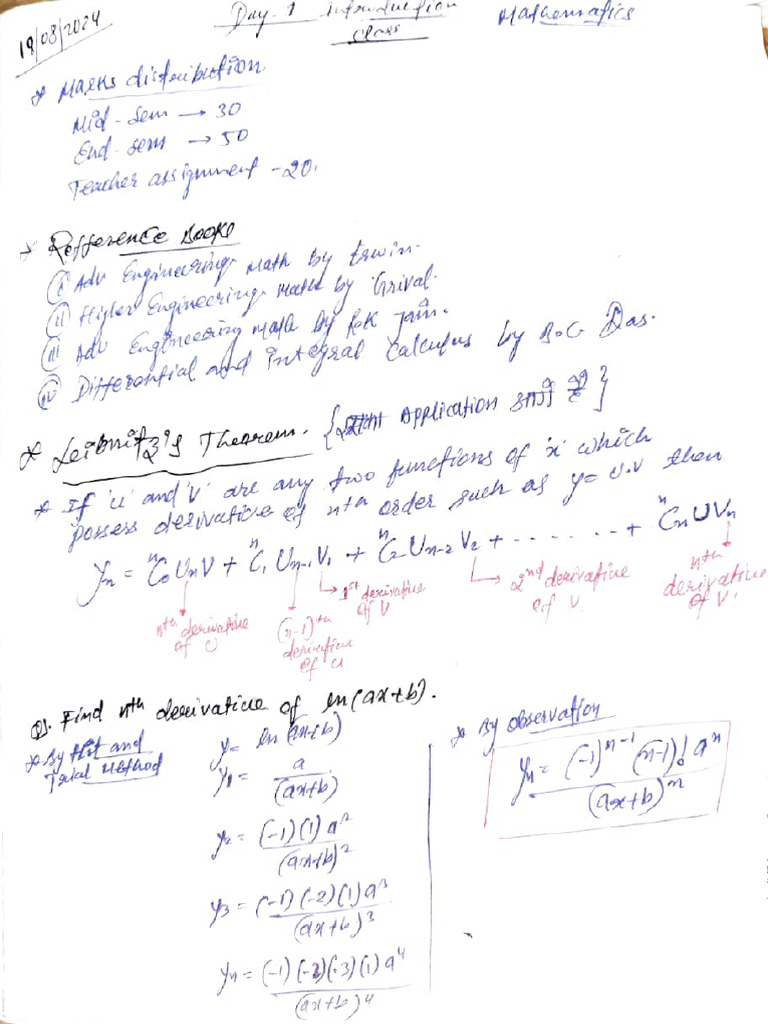 19/08/2024
Day-1 Introduction class
Mathematics
* Marks distribution
Mid-sem → 30
End-sem → 50
Teacher assignment - 20.
* Refference Books
(i) Adv Engineering math by Erwin.
(ii) Higher Engineering math by Grival.
(iii) Adv Engineering math by R.K Jain.
(iv) Differential and integral calculus by B.C Das.
* Leibnitz's Theorem. { Application }
* If 'u' and 'v' are any two functions of 'x' which
possess derivative of nth order such as y = u.v then
yₙ = ⁿC₀UₙV + ⁿC₁Uₙ₋₁V₁ + ⁿC₂Uₙ₋₂V₂ + ....... + ⁿCₙUVₙ
nth derivative of U
(n-1)th derivative of U
1st derivative of V
2nd derivative of V
nth derivative of V
Q1. Find nth derivative of ln(ax+b).
* By Hit and Trial Method
y = ln(ax+b)
y₁ = a/(ax+b)
y₂ = (-1)(1)a²/(ax+b)²
y₃ = (-1)(-2)(1)a³/(ax+b)³
y₄ = (-1)(-2)(-3)(1)a⁴/(ax+b)⁴
* By observation
yₙ = (-1)ⁿ⁻¹(n-1)! aⁿ/(ax+b)ⁿ